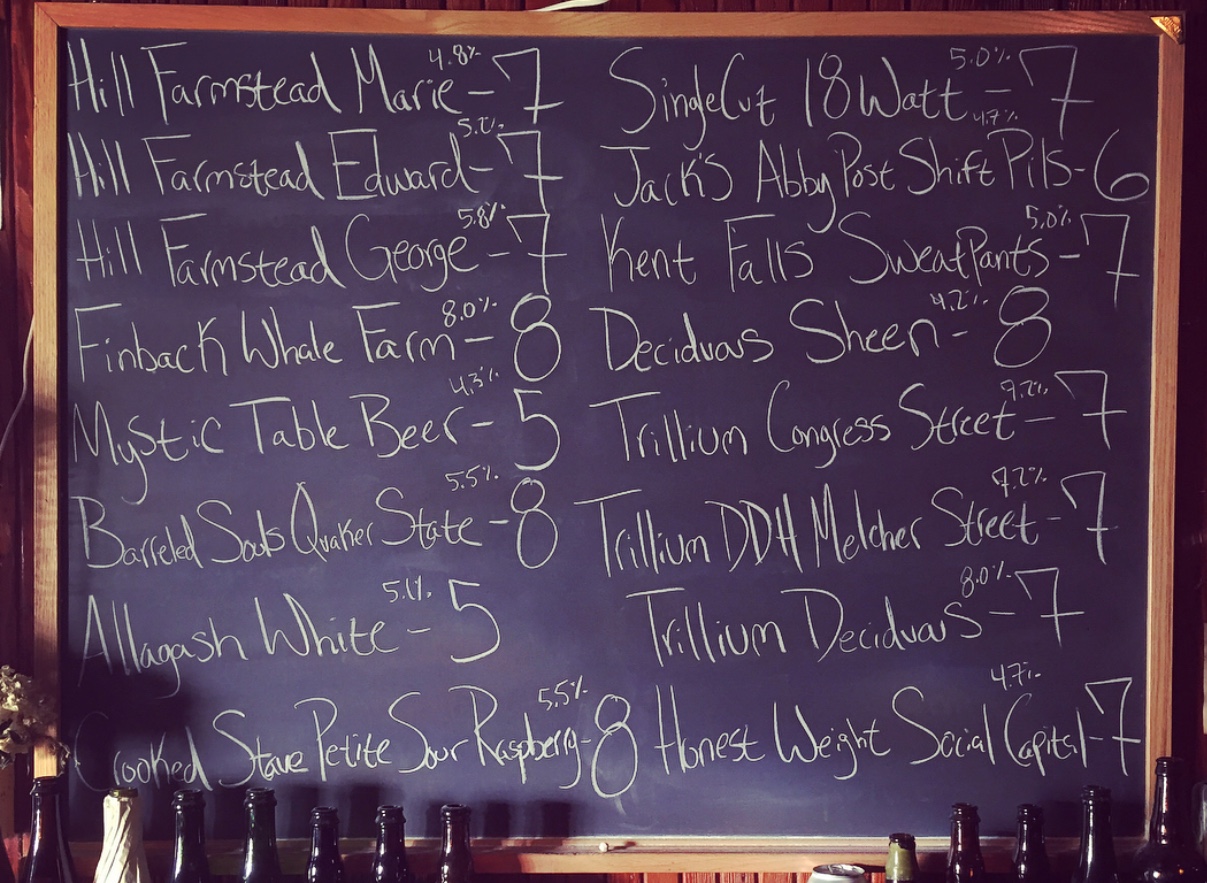 Hill Farmstead Marie 4.8% - 7
Hill Farmstead Edward 5.2% - 7
Hill Farmstead George 5.8% - 7
Finback Whale Farm 8.0% - 8
Mystic Table Beer 4.3% - 5
Barreled Souls Quaker State 5.5% - 8
Allagash White 5.1% - 5
Crooked Stave Petite Sour Raspberry 5.5% - 8
SingleCut 18 Watt 5.0% - 7
Jack's Abby Post Shift Pils 4.7% - 6
Kent Falls SweatPants 5.0% - 7
Deciduous Sheen 4.2% - 8
Trillium Congress Street 7.2% - 7
Trillium DDH Melcher Street 7.2% - 7
Trillium Deciduous 8.0% - 7
Honest Weight Social Capital 4.7% - 7